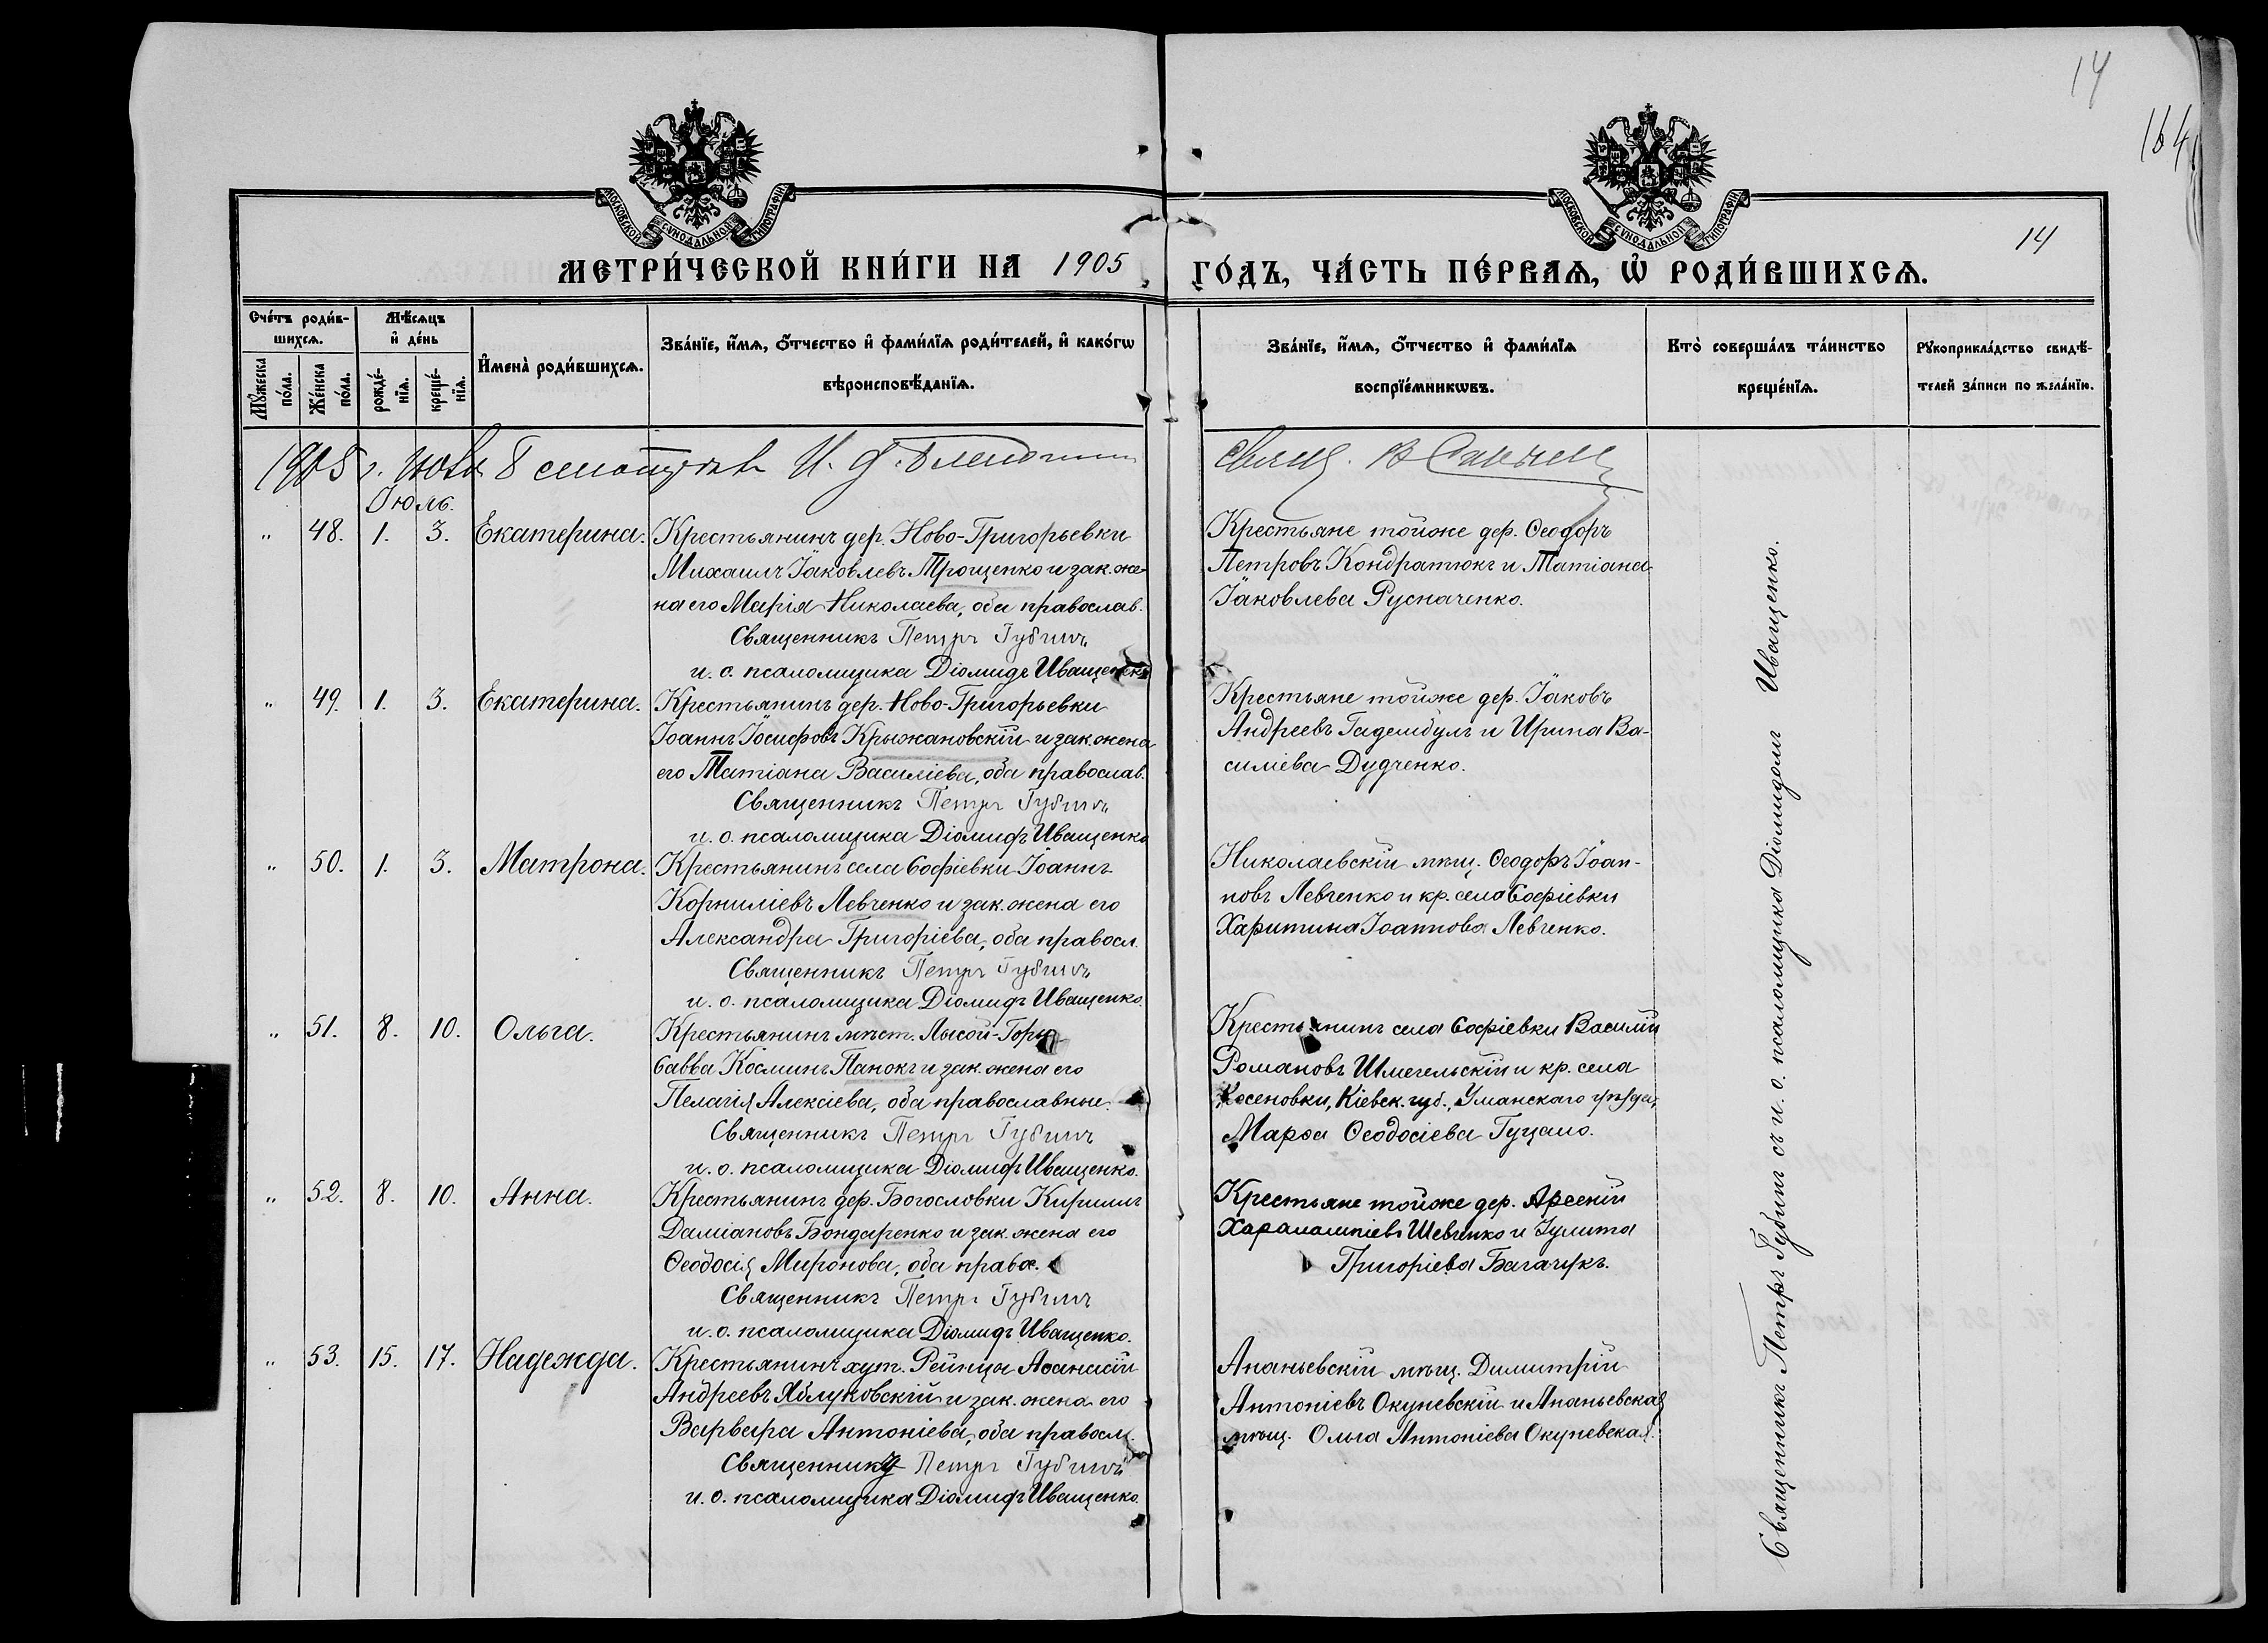 14
164
МОСКОВСКОЙ СѴНОДАЛЬНОЙ ТИПОГРАФІИ
МОСКОВСКОЙ СѴНОДАЛЬНОЙ ТИПОГРАФІИ
14
МЕТРИ́ЧЕСКОЙ КНИ́ГИ НА 1905 ГО́ДЪ, ЧА́СТЬ ПЕ́РВАѦ, Ѽ РОДИ́ВШИХСѦ.
Сче́тъ роди́в-
шихсѧ.
Мꙋ́жеска
по́ла.
Же́нска
по́ла.
Мѣ́сѧцъ
и҆ де́нь
рожде́-
нїѧ.
креще́-
нїѧ.
И҆мена̀ роди́вшихсѧ.
Зва́нїе, и҆́мѧ, ѻ҆́тчество и҆ фами́лїѧ роди́телей, и҆ како́гѡ
вѣроисповѣ́данїѧ.
Зва́нїе, и҆́мѧ, ѻ҆́тчество и҆ фами́лїѧ
воспрїе́мникѡвъ.
Кто̀ соверша́лъ та́инство
креще́нїѧ.
Рꙋкоприкла́дство свидѣ́-
телей за́писи по жела́нїю.
1905 г.
Іюль.
" 48. 1. 3. Екатерина. Крестьянинъ дер. Ново-Григорьевки
Михаилъ Іаковлевъ Трощенко и зак. же-
на его Марія Николаева, оба православ.
Священникъ Петръ Губинъ
и. о. псаломщика Діомидъ Иващенко
Крестьяне тойже дер. Ѳеодоръ
Петровъ Кондратюкъ и Татіана
Іаковлева Русначенко.
" 49. 1. 3. Екатерина. Крестьянинъ дер. Ново-Григорьевки
Іоаннъ Іосифовъ Крыжановскій и зак. жена
его Татіана Василіева, оба православ.
Священникъ Петръ Губинъ
и. о. псаломщика Діомидъ Иващенко
Крестьяне тойже дер. Іаковъ
Андреевъ и Ирина Ва-
силіева Дудченко.
" 50. 1. 3. Матрона. Крестьянинъ села Софіевки Іоаннъ
Корниліевъ Левченко и зак. жена его
Александра Григоріева, оба правосл.
Священникъ Петръ Губинъ
и. о. псаломщика Діомидъ Иващенко.
Николаевскій мѣщ. Ѳеодоръ Іоан-
новъ Левченко и кр. села Софіевки
Харитина Іоаннова Левченко.
" 51. 8. 10. Ольга. Крестьянинъ мѣст. Лысой-Горы
Савва Косминъ Панокъ и зак. жена его
Пелагія Алексіева, оба православные.
Священникъ Петръ Губинъ
и. о. псаломщика Діомидъ Иващенко.
Крестьянинъ села Софіевки Василій
Романовъ Шмегельскій и кр. села
Косеновки, Кіевск. губ., Уманскаго уѣзда,
Марѳа Ѳеодосіева Гуцало.
" 52. 8. 10. Анна. Крестьянинъ дер. Богословки Кириллъ
Даміановъ Бондаренко и зак. жена его
Ѳеодосія Миронова, оба правос.
Священникъ Петръ Губинъ
и. о. псаломщика Діомидъ Иващенко.
Крестьяне тойже дер. Арсеній
Харалампіевъ Шевченко и Іулита
Григоріева Багачукъ.
" 53. 15. 17. Надежда. Крестьянинъ хут. Рейнца Аѳанасій
Андреевъ Яблуновскій и зак. жена его
Варвара Антоніева, оба правосл.
Священникъ Петръ Губинъ
и. о. псаломщика Діомидъ Иващенко.
Ананьевскій мѣщ. Димитрій
Антоніевъ Окуневскій и Ананьевская
мѣщ. Ольга Антоніева Окуневская.
Священникъ Петръ Губинъ съ и. о. псаломщика Діомидомъ Иващенко.